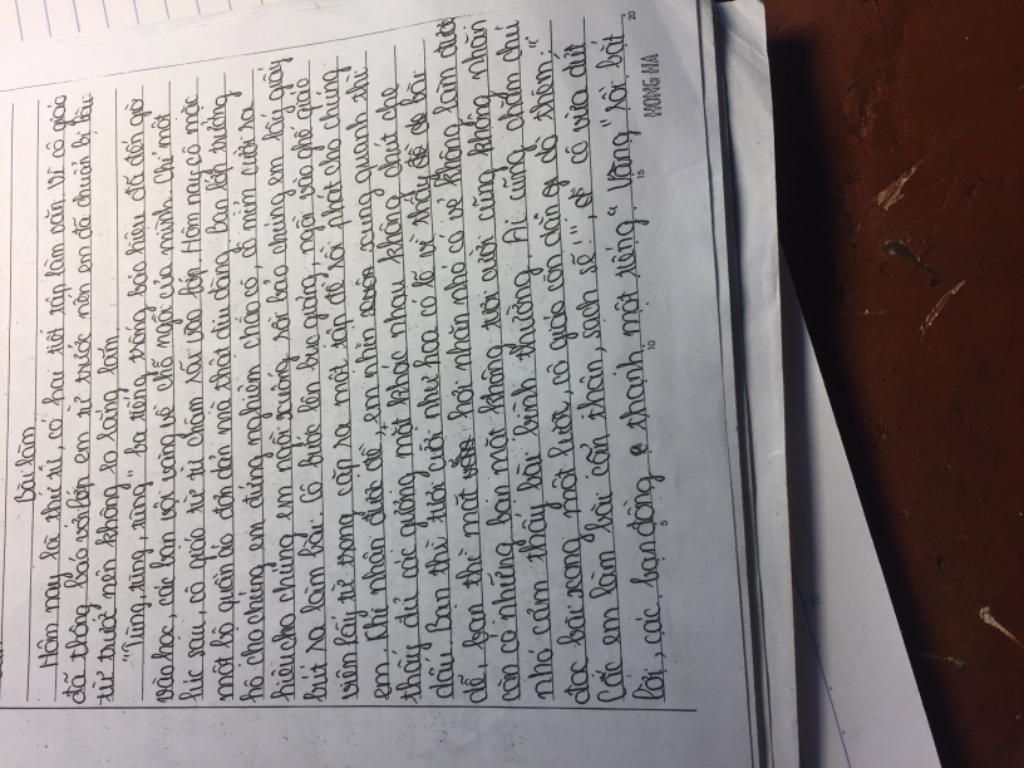 Bài làm
Hôm nay là thứ tư, có hai tiết tập làm văn. Vì cô giáo
đã thông báo với lớp em từ trước nên em đã chuẩn bị bài
từ trước nên không lo lắng lắm.
"Tùng, tùng, tùng" ba tiếng trống báo hiệu đã đến giờ
vào học, các bạn vội vàng về chỗ ngồi của mình. Chỉ một
lúc sau, cô giáo từ từ chậm rãi vào lớp. Hôm nay, cô mặc
một bộ quần áo đơn giản mà thật dịu dàng. Bạn lớp trưởng
hô cho chúng em đứng nghiêm chào cô, cô mỉm cười ra
hiệu cho chúng em ngồi xuống rồi bảo chúng em lấy giấy
bút ra làm bài. Cô bước lên bục giảng, ngồi vào ghế giáo
viên lấy từ trong cặp ra một tập đề rồi phát cho chúng
em. Khi nhận được đề, em nhìn xung quanh thì
thấy đủ các giọng mặt khác nhau không chút che
dấu. Bạn thì tươi cười như hoa có lẽ vì thấy đề dễ, bài
dễ, bạn thì mặt hơi nhăn nhó có vẻ không làm được
còn có những bạn mặt không tươi cười cũng không nhăn
nhó cảm thấy bài bình thường. Ai cũng chăm chú
đọc bài xong một lượt, cô giáo còn dặn dò thêm:"
Các em làm bài cẩn thận, sạch sẽ!", cô vừa dứt
lời, các bạn đồng thanh một tiếng "Vâng" rồi bắt
5 10 15 20
HONG HA